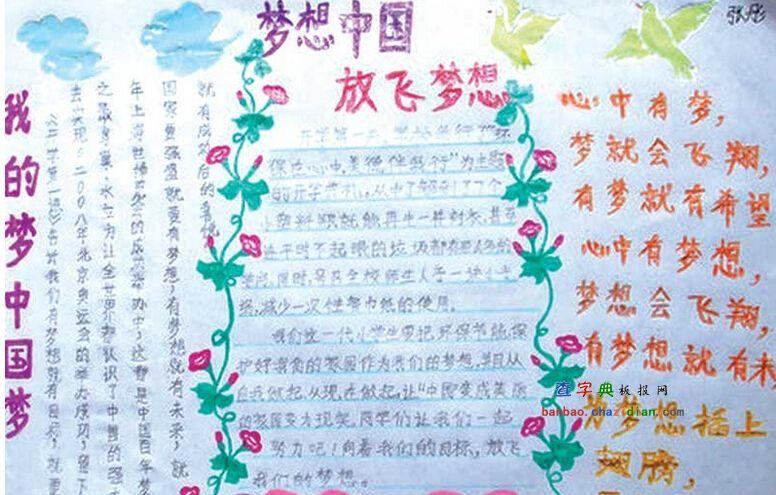 梦想中国
放飞梦想
张彤
我的梦中国梦
就有成功后的喜悦
国家要强盛就要有梦想,有梦想就有未来,就
年上海世博会的成功举办中,这都是中国百年梦
之最身量,水立方让全世界都认识了中国的强大
去实现,二00八年北京奥运会的举办成功,留下
《开学第一课》告诉我们有梦想就有目标,就要
开学第一天,学校举行"环
保在心中,美德伴我行"为主题
的开学典礼。从中了解到了7个
小塑料瓶就能再生一件衬衣,甚至
连平时不起眼的垃圾都有
同时,号召全校师生人手一块小毛
减少一次性餐巾纸的使用。
我们这一代小学生要把环保节能,保
护好我们的家园作为我们的梦想,并且从
自我做起,从现在做起,让"中国变成美丽
的家园变为现实,同学们让我们一起
努力吧!向着我们的目标,放飞
我们的梦想。
心中有梦,
梦就会飞翔,
有梦就有希望
心中有梦想,
梦想会飞翔,
有梦想就有未
为梦想插上
翅膀,
查字典板报网
banbao.chazidian.com